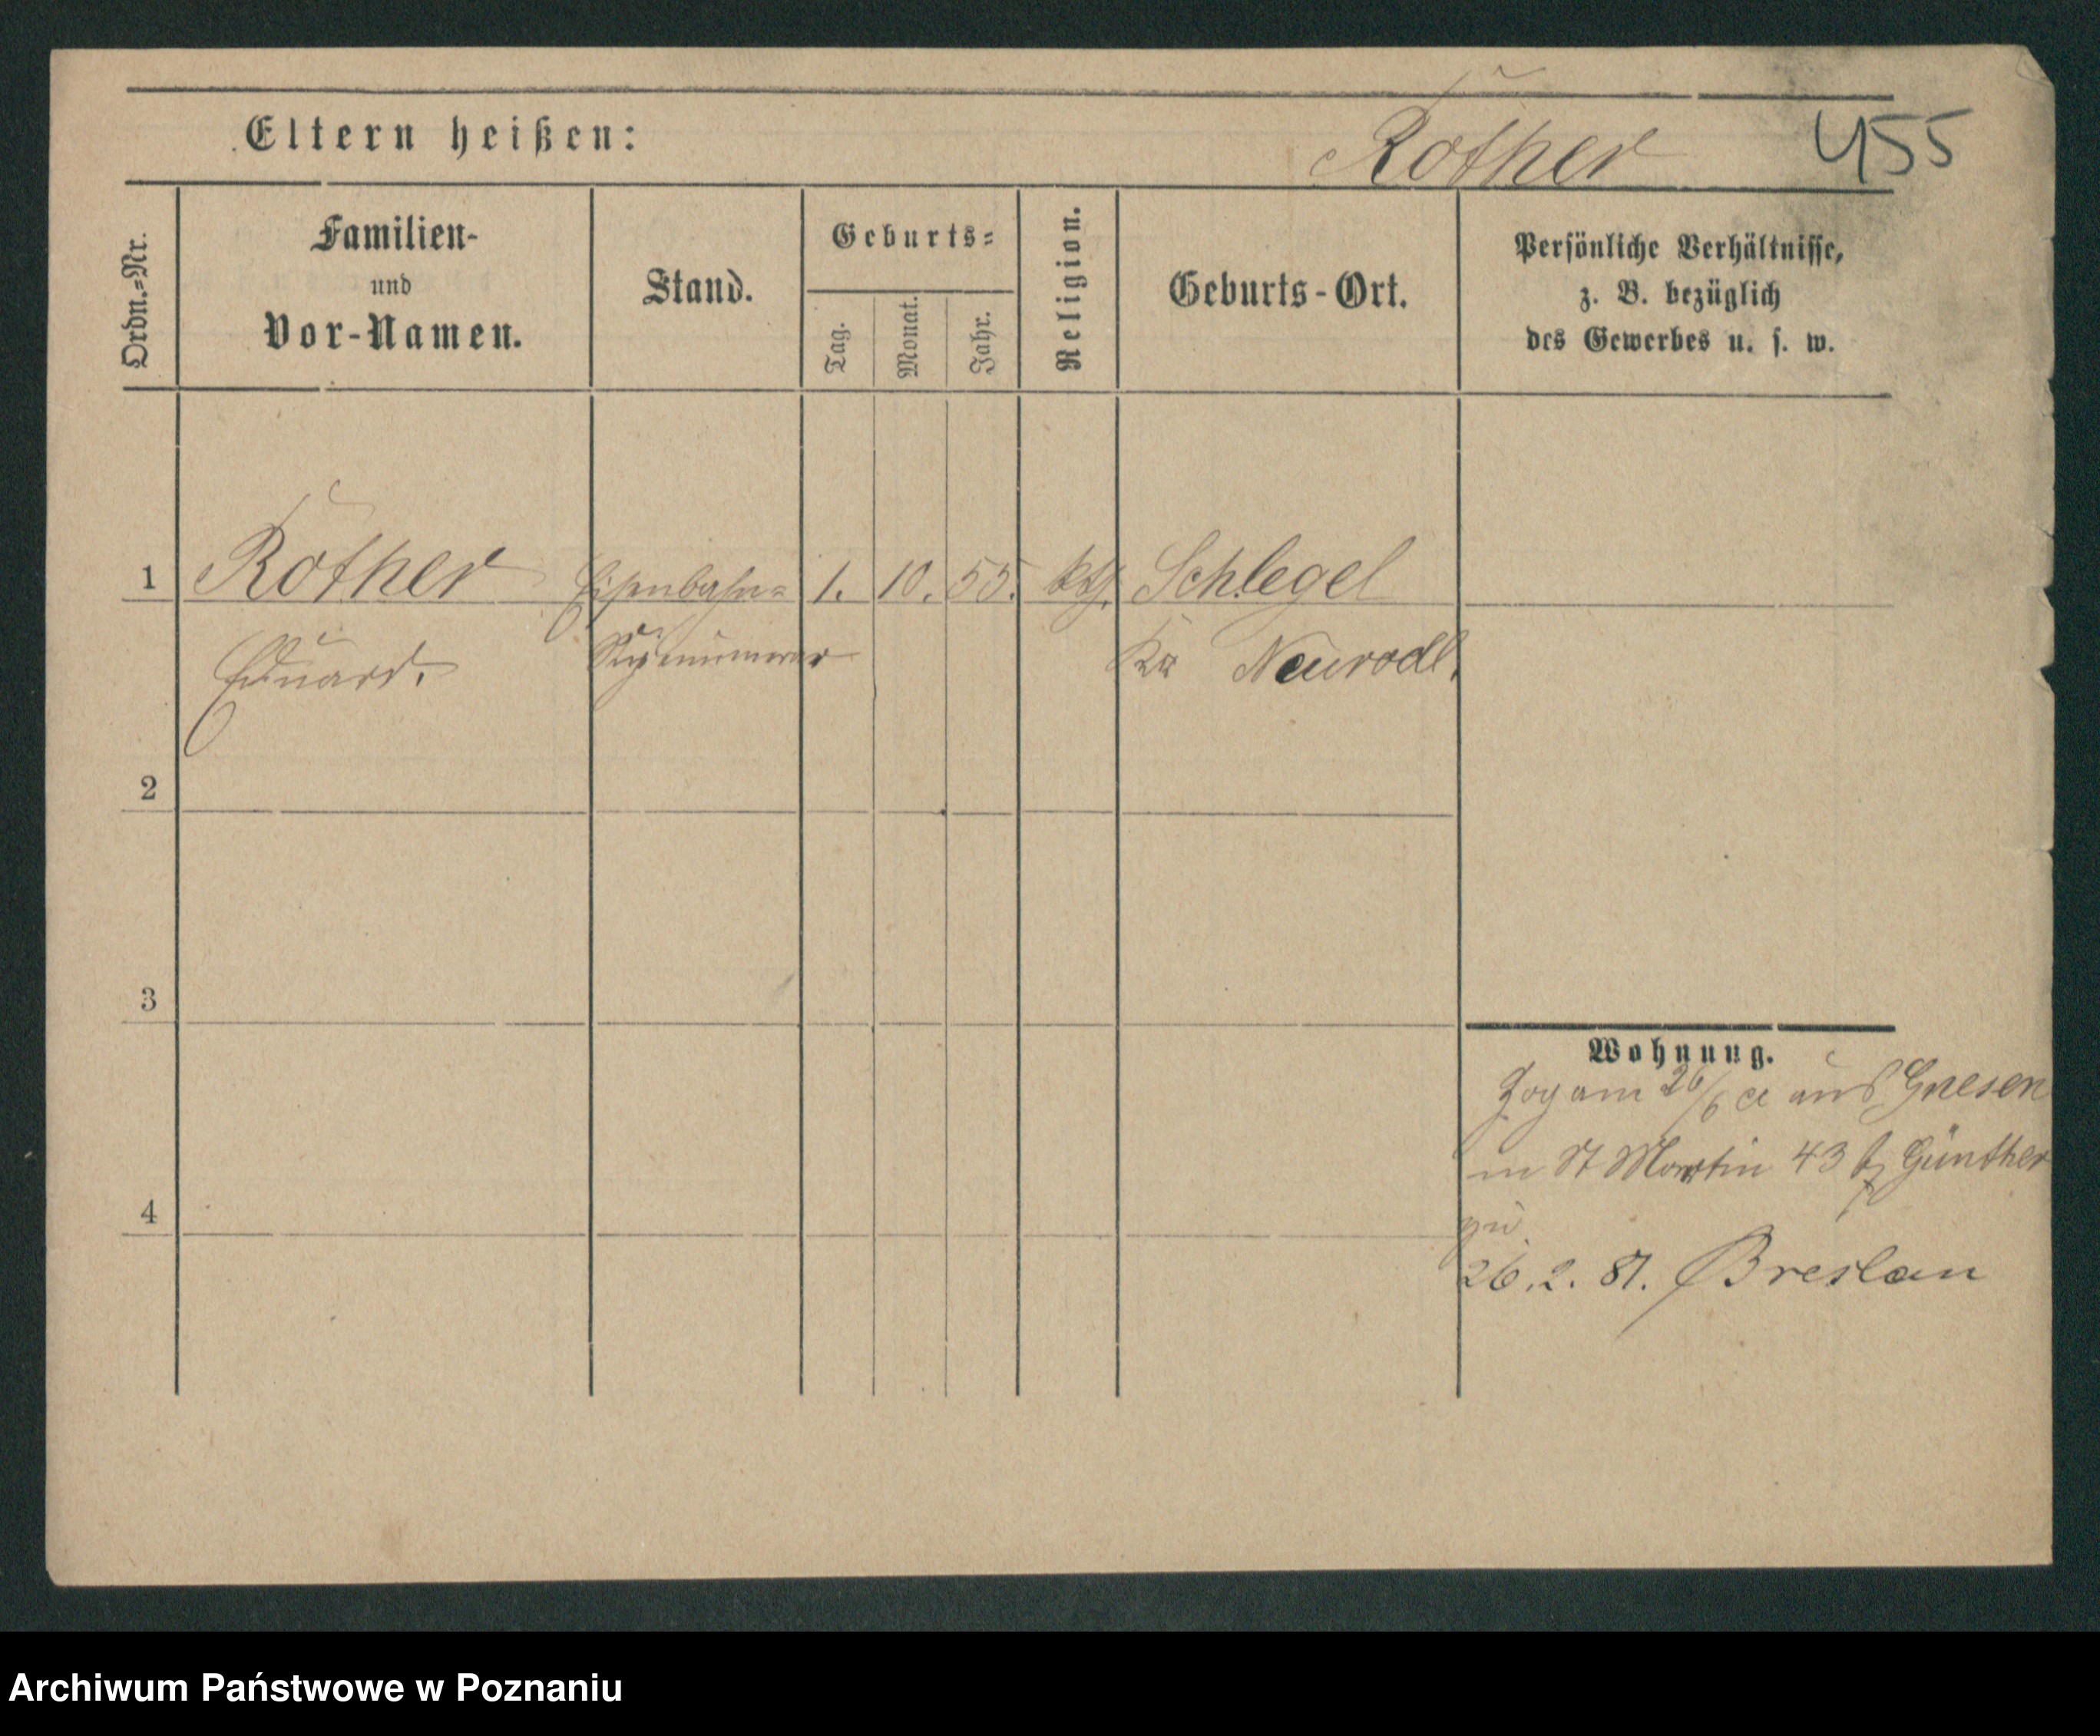 Eltern heißen:
Rother
455
Ordn.=Nr.
Familien-
und
Vor-Namen.
Stand.
Geburts=
Tag.
Monat.
Jahr.
Religion.
Geburts-Ort.
Persönliche Verhältnisse,
z. B. bezüglich
des Gewerbes u. s. w.
1 Rother Eisenbahn= 1. 10. 55. kth. Schlegel
Eduard. Supernumerar Kr Neurode.
2
3
Wohnung.
Zog am 26/6 cr aus Gnesen
in St Martin 43 b. Günther
4
zu
26.2.81. Breslau
Archiwum Państwowe w Poznaniu